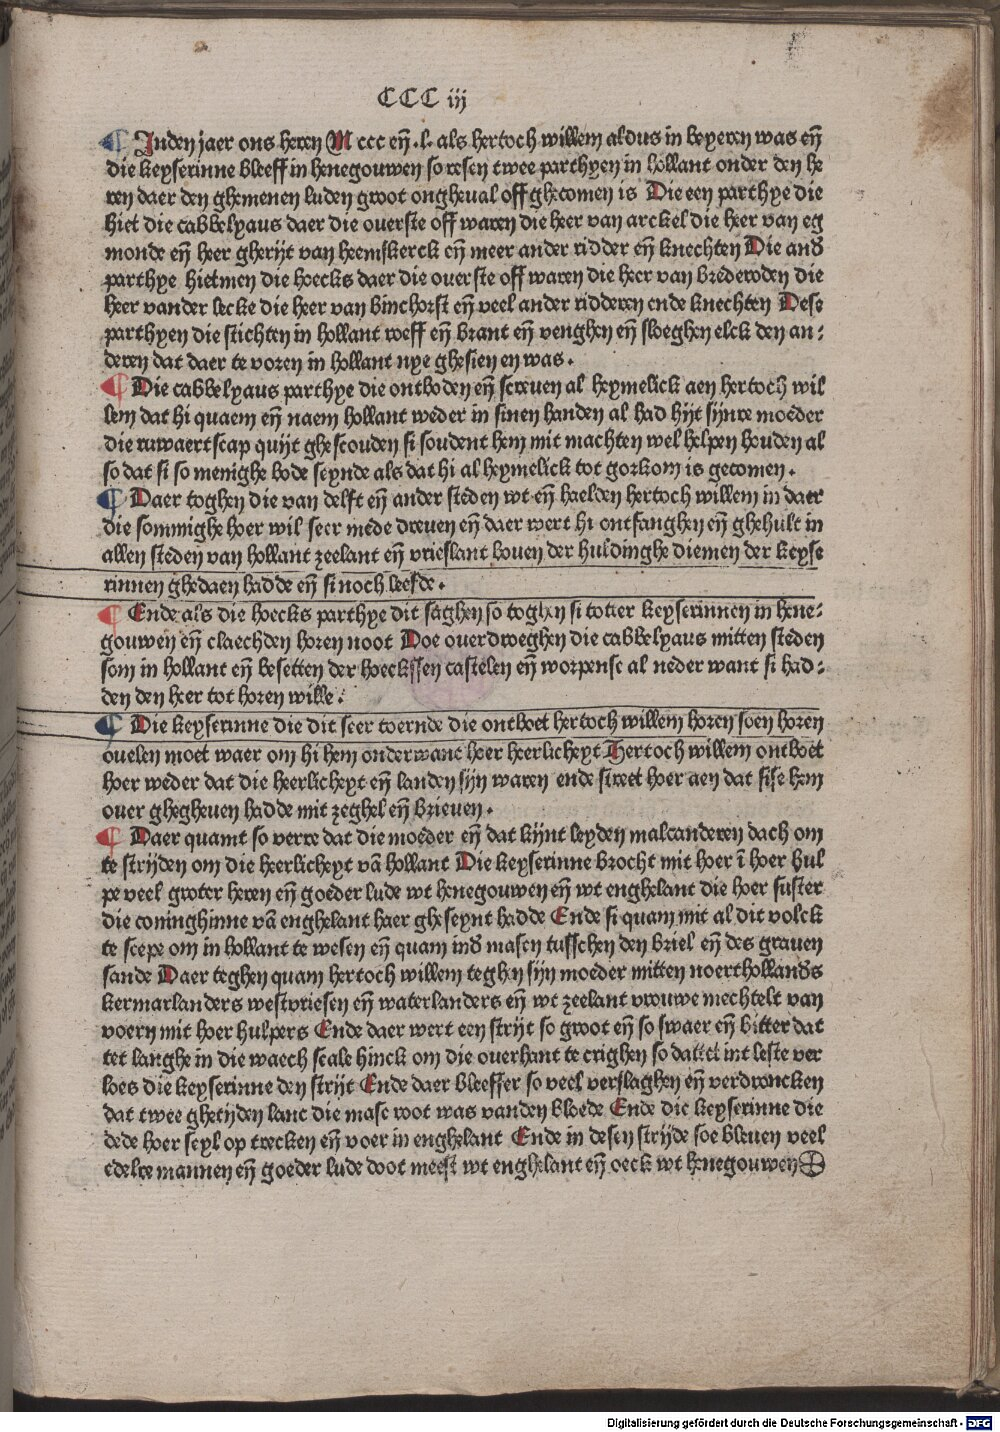 CCC iij
¶ Inden jaer ons heren M ccc eñ .l. als hertoch willem aldus in beyeren was eñ
die keyserinne bleeff in henegouwen so resen twee parthyen in hollant onder den he
ren daer den ghemenen luden groot ongheual off ghecomen is Die een parthye die
hiet die cabbelyaus daer die ouerste off waren die heer van arckel die heer van eg
monde eñ heer gherijt van heemskerck eñ meer ander ridder eñ knechten Die and̄
parthye hietmen die hoecks daer die ouerste off waren die heer van brederoden die
heer vander lecke die heer van binchorst eñ veel ander ridderen ende knechten Dese
parthyen die stichten in hollant roeff eñ brant eñ venghen eñ sloeghen elck den an⸗
deren dat daer te voren in hollant nye ghesien en was.
¶ Die cabbelyaus parthye die ontboden eñ screuen al heymelick aen hertoch wil
lem dat hi quaem eñ naem hollant weder in sinen handen al had hijt sijnre moeder
die ruwaertscap quijt ghescouden si soudent hem mit machten wel helpen houden al
so dat si so menighe bode seynde als dat hi al heymelick tot gorkom is gecomen.
¶ Daer toghen die van delft eñ ander steden wt eñ haelden hertoch willem in daer
die sommighe hoer wil seer mede dreuen eñ daer wert hi ontfanghen eñ ghehult in
allen steden van hollant zeelant eñ vrieslant bouen der huldinghe diemen der keyse
rinnen ghedaen hadde eñ si noch leefde.
¶ Ende als die hoecks parthye dit saghen so toghen si totter keyserinnen in hene⸗
gouwen eñ claechden horen noot Doe ouerdroeghen die cabbelyaus mitten steden
som in hollant eñ besetten der hoeckssen castelen eñ worpense al neder want si had⸗
den den heer tot horen wille.
¶ Die keyserinne die dit seer toernde die ontboet hertoch willem horen soen horen
ouelen moet waer om hi hem onderwant hoer heerlicheyt Hertoch willem ontboet
hoer weder dat die heerlicheyt eñ landen sijn waren ende screef hoer aen dat sise hem
ouer ghegheuen hadde mit zeghel eñ brieuen.
¶ Daer quamt so verre dat die moeder eñ dat kijnt leyden malcanderen dach om
te strijden om die heerlicheyt vā hollant Die keyserinne brocht mit hoer ī hoer hul
pe veel groter heren eñ goeder lude wt henegouwen eñ wt enghelant die hoer suster
die coninghinne vā enghelant haer gheseynt hadde Ende si quam mit al dit volck
te scepe om in hollant te wesen eñ quam ind̄ masen tusschen den briel eñ des grauen
sande Daer teghen quam hertoch willem teghen sijn moeder mitten noerthollanders
kermarlanders westvriesen eñ waterlanders eñ wt zeelant vrouwe mechtelt van
voern mit hoer hulpers Ende daer wert een strijt so groot eñ so swaer eñ bitter dat
tet langhe in die waech scale hinck om die ouerhant te crighen so dattet int leste ver
loes die keyserinne den strijt Ende daer bleeffer so veel verslaghen eñ verdroncken
dat twee ghetijden lanc die mase root was vanden bloede Ende die keyserinne die
dede hoer seyl op trecken eñ voer in enghelant Ende in desen strijde soe bleuen veel
edelre mannen eñ goeder lude doot meest wt enghelant eñ oeck wt henegouwen
Digitalisierung gefördert durch die Deutsche Forschungsgemeinschaft - DFG